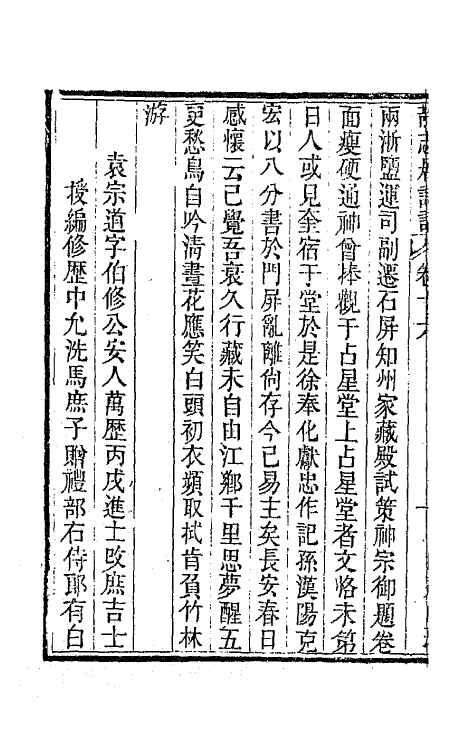 靜志居詩話卷十六
兩浙鹽運司副遷石屏知州家藏殿試策神宗御題卷
面瘦硬通神曾捧觀于占星堂上占星堂者文恪未第
日人或見奎宿于堂於是徐奉化獻忠作記孫漢陽克
宏以八分書於門屏亂離尙存今已易主矣長安春日
感懷云已覺吾衰久行藏未自由江鄉千里思夢醒五
更愁鳥自吟淸晝花應笑白頭初衣頻取拭肯負竹林
游
袁宗道字伯修公安人萬歷丙戌進士改庶吉士
授編修歷中允洗馬庶子贈禮部右侍郎有白